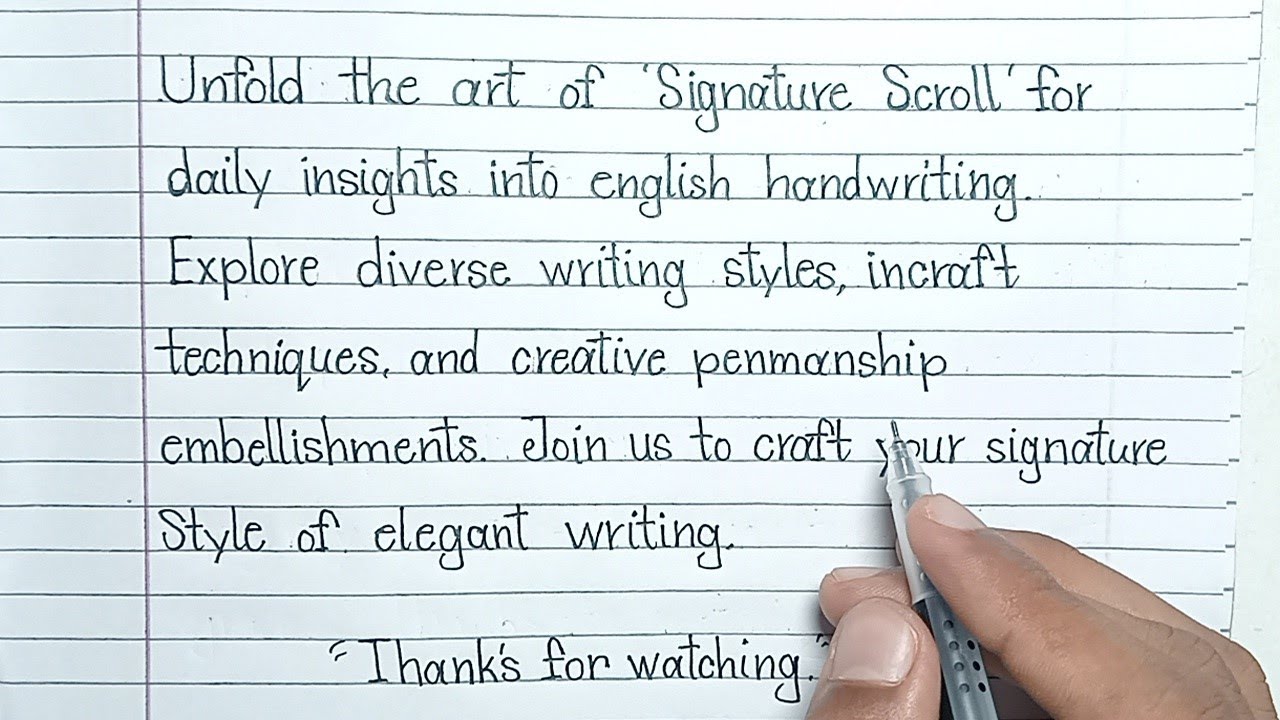 Unfold the art of 'Signature Scroll' for
daily insights into english handwriting.
Explore diverse writing styles, incraft
techniques, and creative penmanship
embellishments. Join us to craft your signature
Style of elegant writing.
"Thank's for watching."